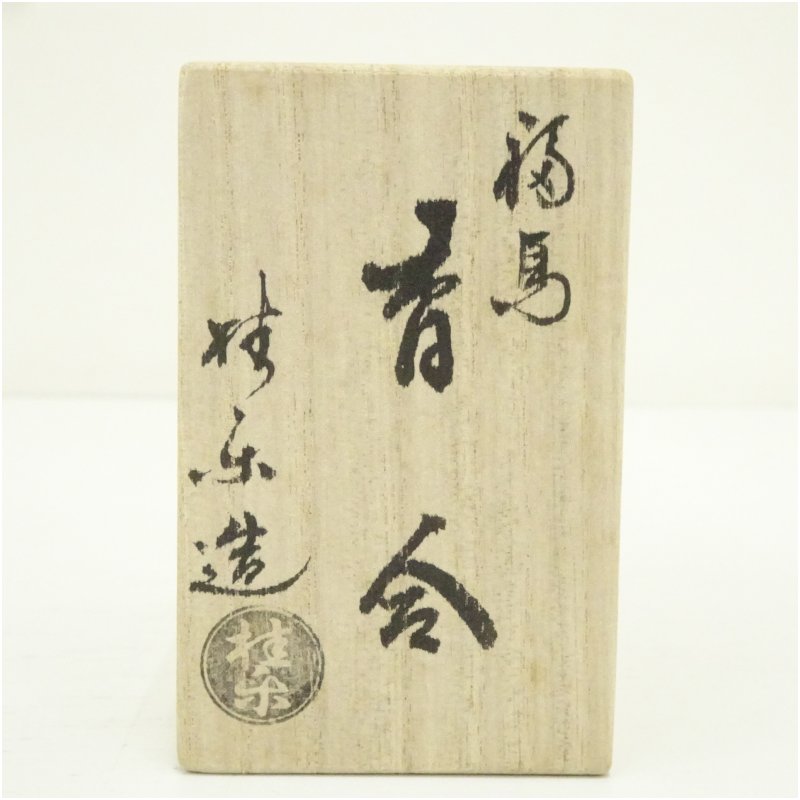 福馬
香合
桂楽造
桂楽